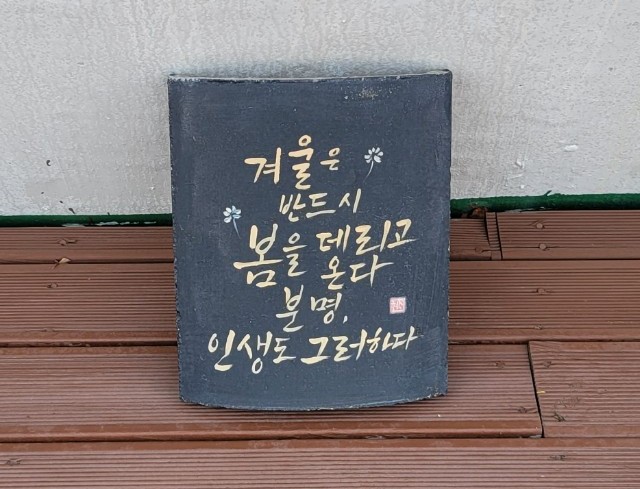 겨울은
반드시
봄을 데리고
온다
분명,
인생도 그러하다